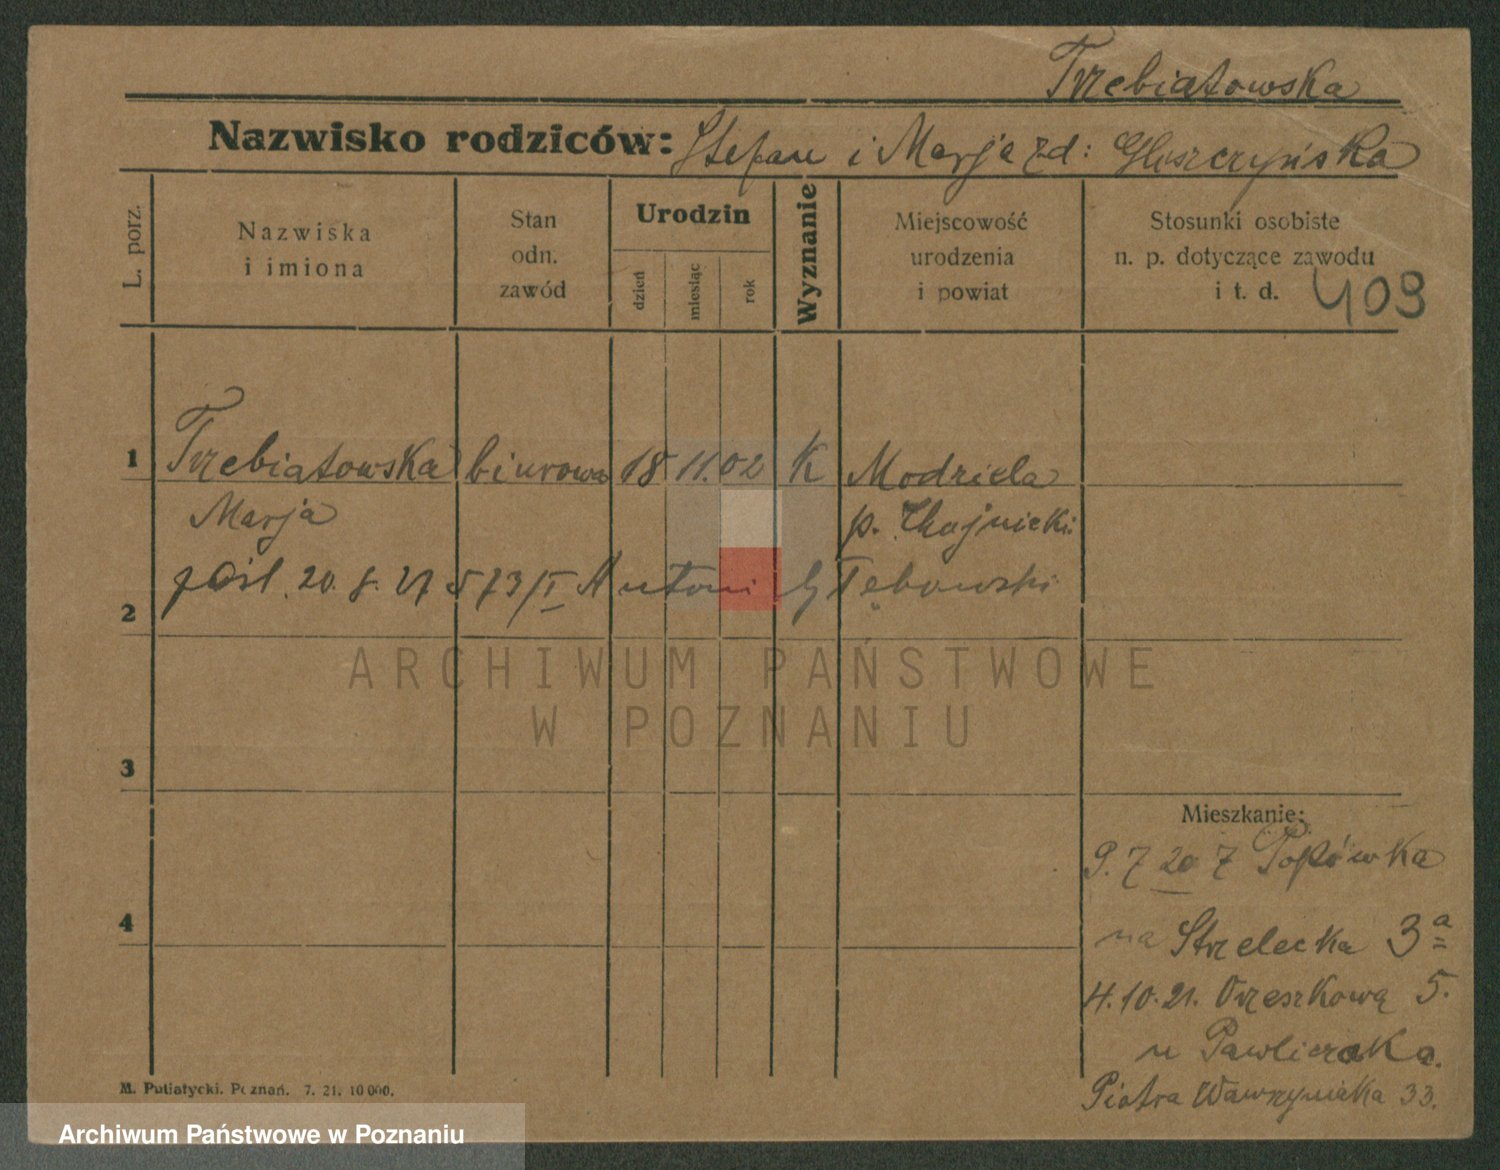 Trzebiatowska
Nazwisko rodziców: Stefan i Marja z d: Gluszczyńska
L. porz.
Nazwiska
i imiona
Stan
odn.
zawód
Urodzin
dzień
miesiąc
rok
Wyznanie
Miejscowość
urodzenia
i powiat
Stosunki osobiste
n. p. dotyczące zawodu
i t. d.
409
1 Trzebiatowska biurowa 18 11.02 K Modziela
Marja p. Chojnicki
pośl. 20. 8. 27 573/I Antoni Głębowski
2
ARCHIWUM PAŃSTWOWE
W POZNANIU
3
Mieszkanie:
9. 7 20 z
4
na Strzelecka 3a
4.10.21. Orzeszkową 5.
u Pawliczaka.
Piotra Wawrzyniaka 33.
M. Putiatycki. Poznań. 7. 21. 10 000.
Archiwum Państwowe w Poznaniu